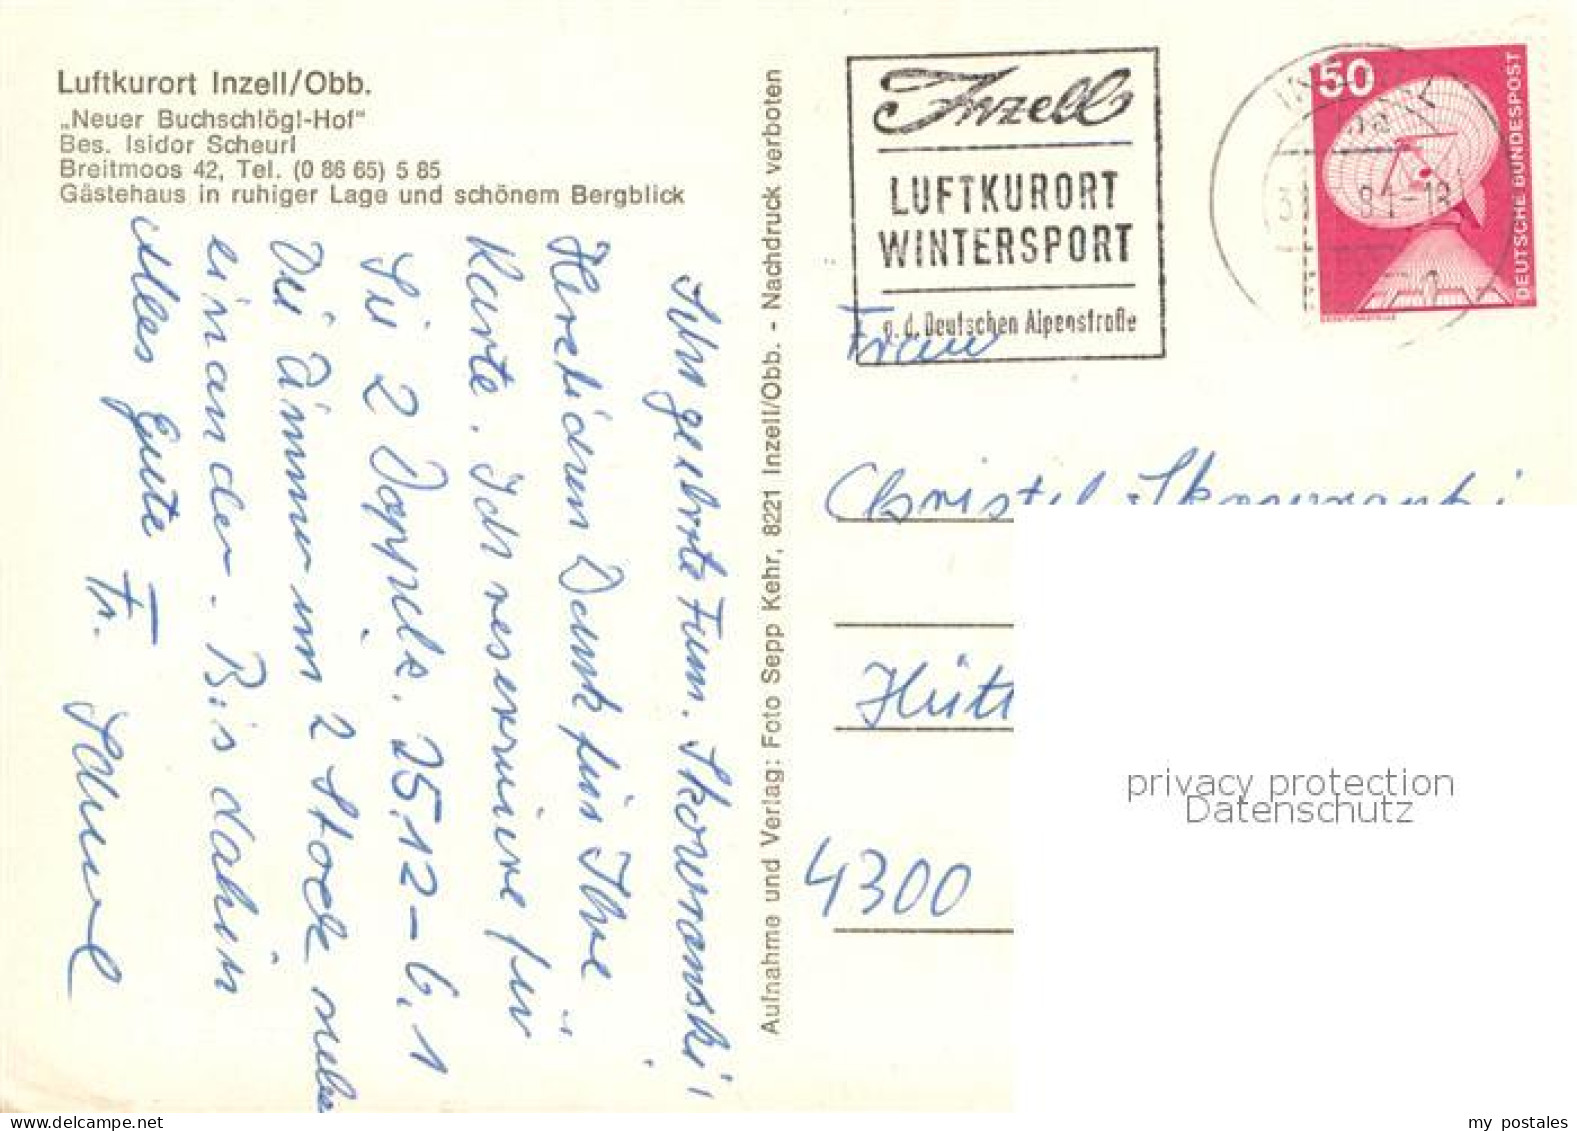 Luftkurort Inzell/Obb.
„Neuer Buchschlögl-Hof“
Bes. Isidor Scheurl
Breitmoos 42, Tel. (0 86 65) 5 85
Gästehaus in ruhiger Lage und schönem Bergblick
Sehr geehrte Fam. Skowronski!
Herzlichen Dank für Ihre
Karte. Ich reserviere für
Sie 2 Doppelz. 25.12-6.1
Die Zimmer im 2 Stock neben
einander. Bis dahin
Alles Gute Fr. Scheurl
Aufnahme und Verlag: Foto Sepp Kehr, 8221 Inzell/Obb. - Nachdruck verboten
Inzell
LUFTKURORT
WINTERSPORT
a.d. Deutschen Alpenstraße
50
DEUTSCHE BUNDESPOST
Frau
Christel Skowronski
Hütt
4300
privacy protection
Datenschutz
my postales